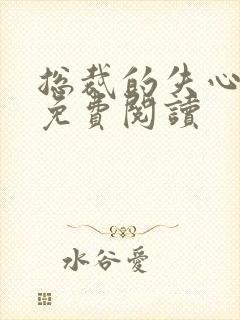 总裁的失心
免費閱讀
水谷愛